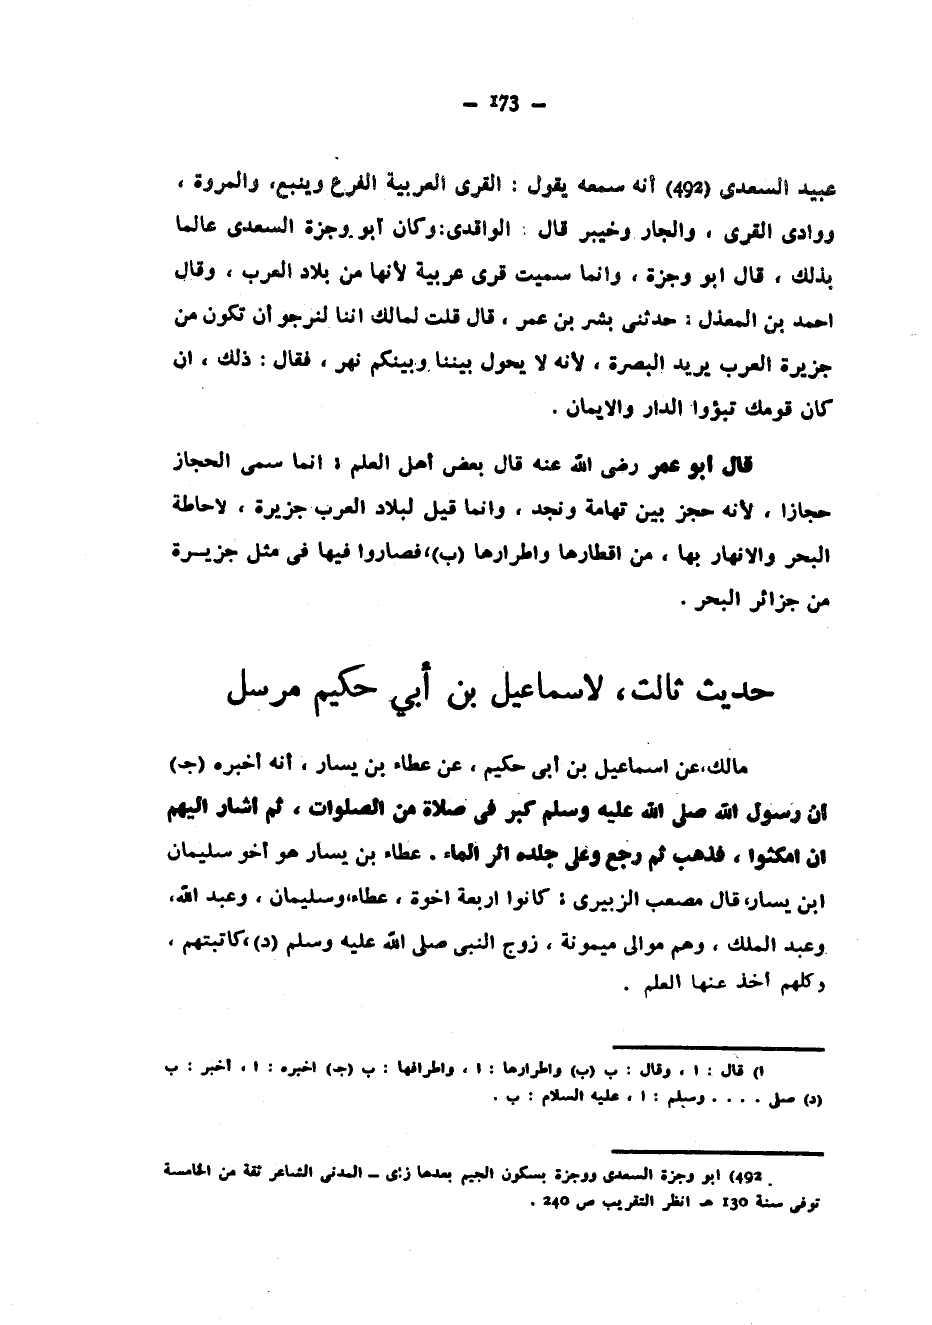 — 173 —
عبيد السعدى (492) أنه سمعه يقول : القرى العربية الفرع وينبع، والمروة ،
ووادى القرى ، والجار وخيبر قال : الواقدى:وكان أبو وجزة السعدى عالما
بذلك ، قال ابو وجزة ، وانما سميت قرى عربية لأنها من بلاد العرب ، وقال
احمد بن المعذل : حدثنى بشر بن عمر ، قال قلت لمالك اننا لنرجو أن تكون من
جزيرة العرب يريد البصرة ، لأنه لا يحول بيننا وبينكم نهر ، فقال : ذلك ، ان
كان قومك تبؤوا الدار والايمان .
قال أبو عمر رضى الله عنه قال بعض أهل العلم : انما سمى الحجاز
حجازا ، لأنه حجز بين تهامة ونجد ، وانما قيل لبلاد العرب جزيرة ، لاحاطة
البحر والانهار بها ، من اقطارها واطرارها (ب)،فصاروا فيها فى مثل جزيـرة
من جزائر البحر .
حديث ثالث، لاسماعيل بن أبي حكيم مرسل
مالك،عن اسماعيل بن أبى حكيم ، عن عطاء بن يسار ، أنه أخبره (جـ)
أن رسول الله صلى الله عليه وسلم كبر فى صلاة من الصلوات ، ثم أشار اليهم
ان امكثوا ، فذهب ثم رجع وعلى جلده اثر الماء . عطاء بن يسار هو أخو سليمان
ابن يسار، قال مصعب الزبيرى : كانوا اربعة اخوة ، عطاء،وسليمان ، وعبد الله،
وعبد الملك ، وهم موالى ميمونة ، زوج النبى صلى الله عليه وسلم (د)،كاتبتهم ،
وكلهم أخذ عنها العلم .
ا) قال : ا ، وقال : ب (ب) واطرارها : ا ، واطرافها : ب (جـ) اخبره : ا ، أخبر : ب
(د) صلى . . . . وسلم : ا ، عليه السلام : ب .
492) ابو وجزة السعدى ووجزة بسكون الجيم بعدها زاى ــ المدنى الشاعر ثقة من الخامسة
توفى سنة 130 هـ انظر التقريب ص 240 .